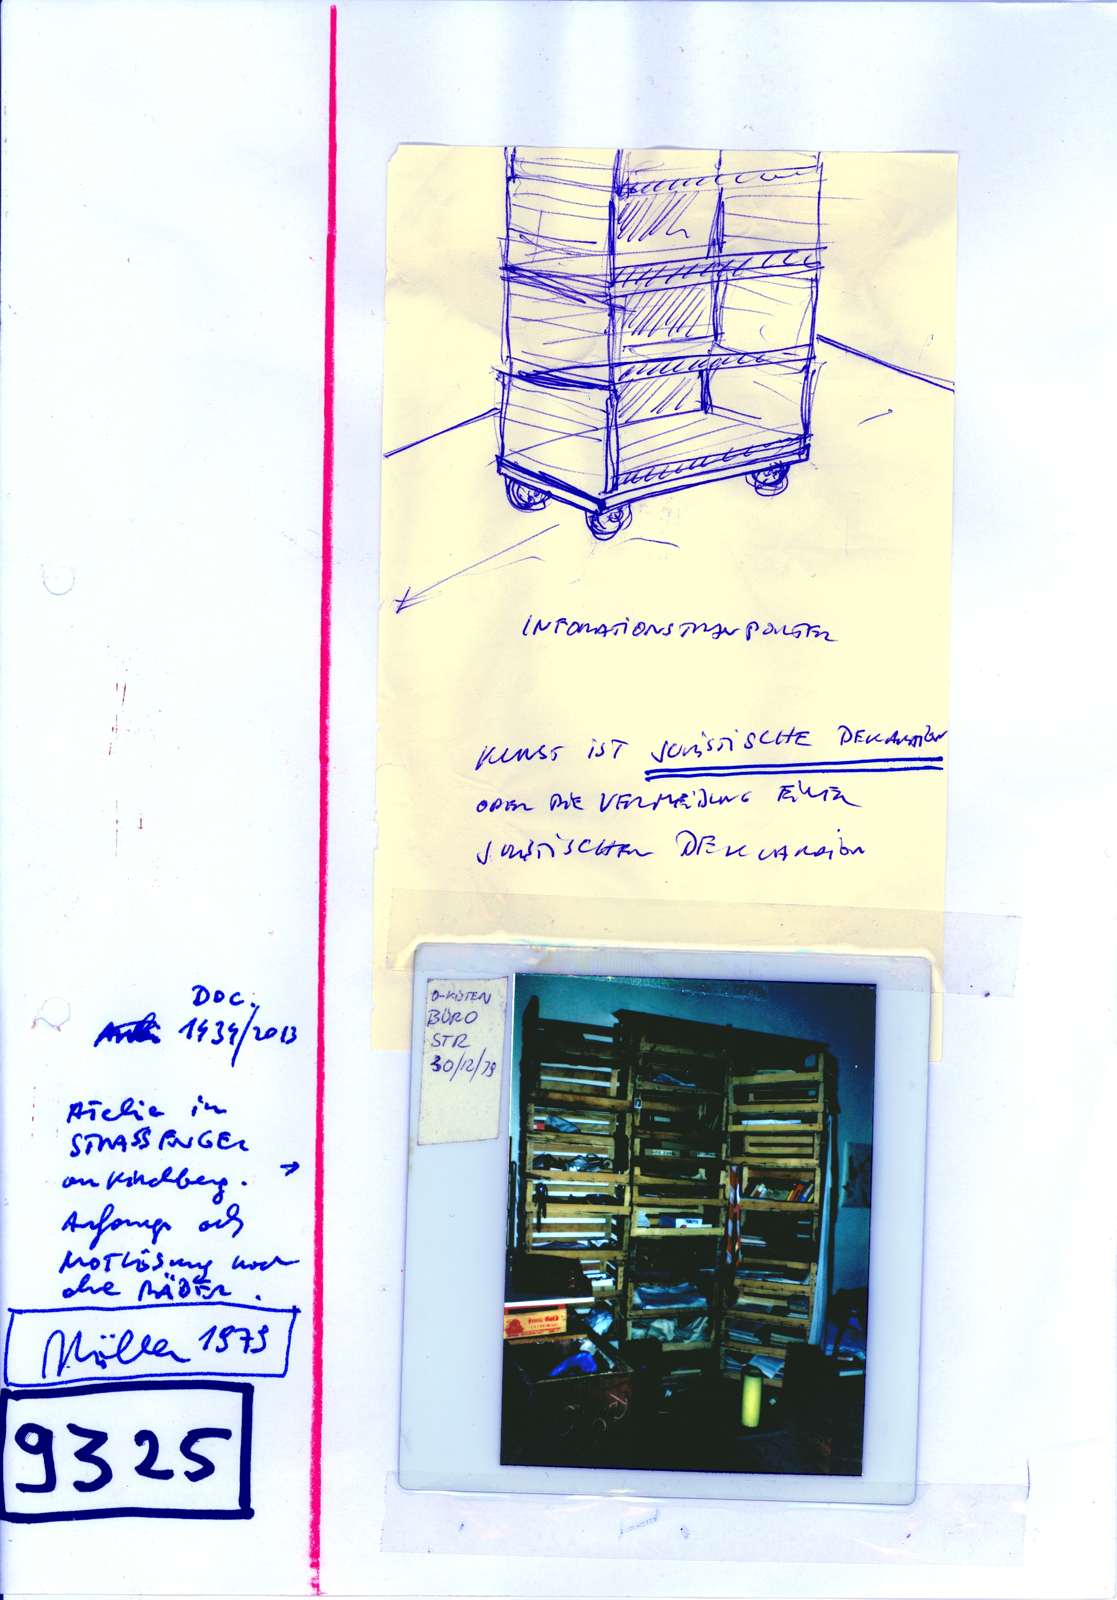 INFORMATIONSTRANSPORTER
KUNST IST JURISTISCHE DEKLARATION
ODER DIE VERMEIDUNG EINER
JURISTISCHEN DEKLARATION
O-KISTEN
BÜRO
STR
30/12/79
DOC.
1434/2013
Atelier in
STRASSENGEL
am Kirchberg. →
Anfangs als
NOTLÖSUNG noch
ohne RÄDER.
Möller 1979
9325